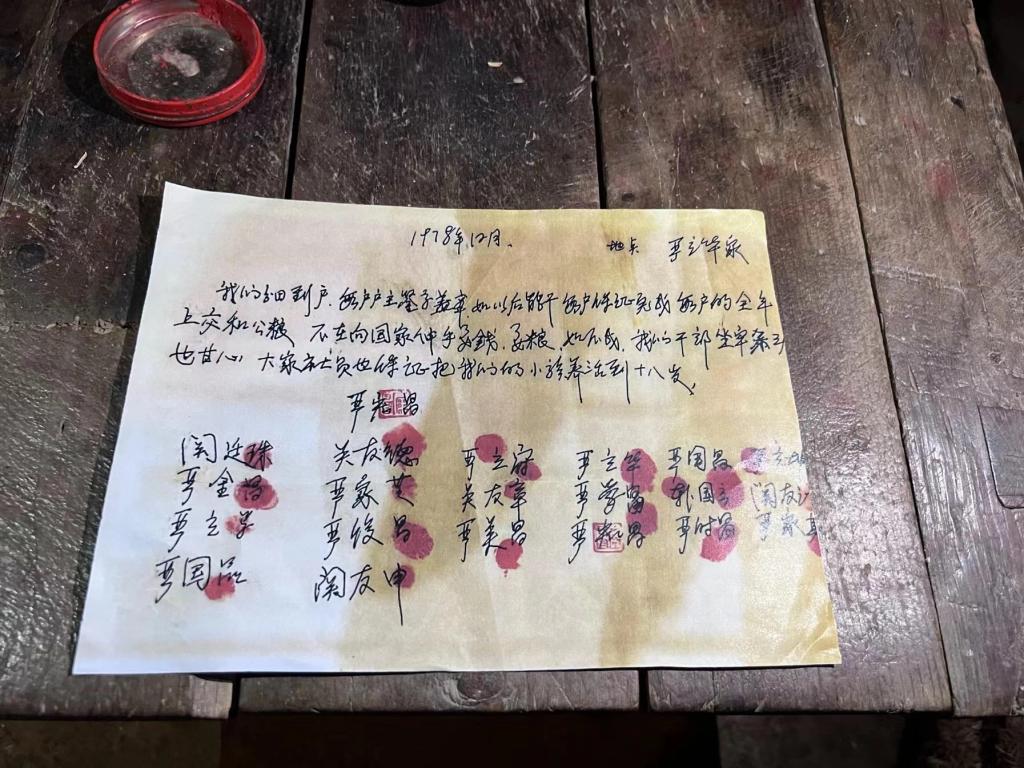 1978年12月. 地点 严立华家
我们分田到户,每户户主签字盖章,如以后能干,每户保证完成每户的全年
上交和公粮 不在向国家伸手要錢,要粮,如不成,我们干部坐牢杀头
也甘心,大家社员也保证把我们的小孩养活到十八岁、
严宏昌
关廷珠 关友德 严立符 严立华 严国昌 严立坤
严金昌 严家芝 关友章 严学昌 韩国云 关友江
严立学 严俊昌 严美昌 严宏昌 严付昌 严家其
严国品 关友申